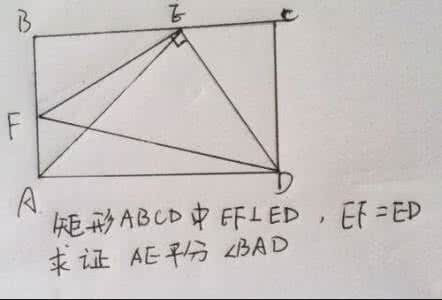 B E C
F
A D
矩形ABCD中EF⊥ED，EF=ED
求证 AE平分∠BAD